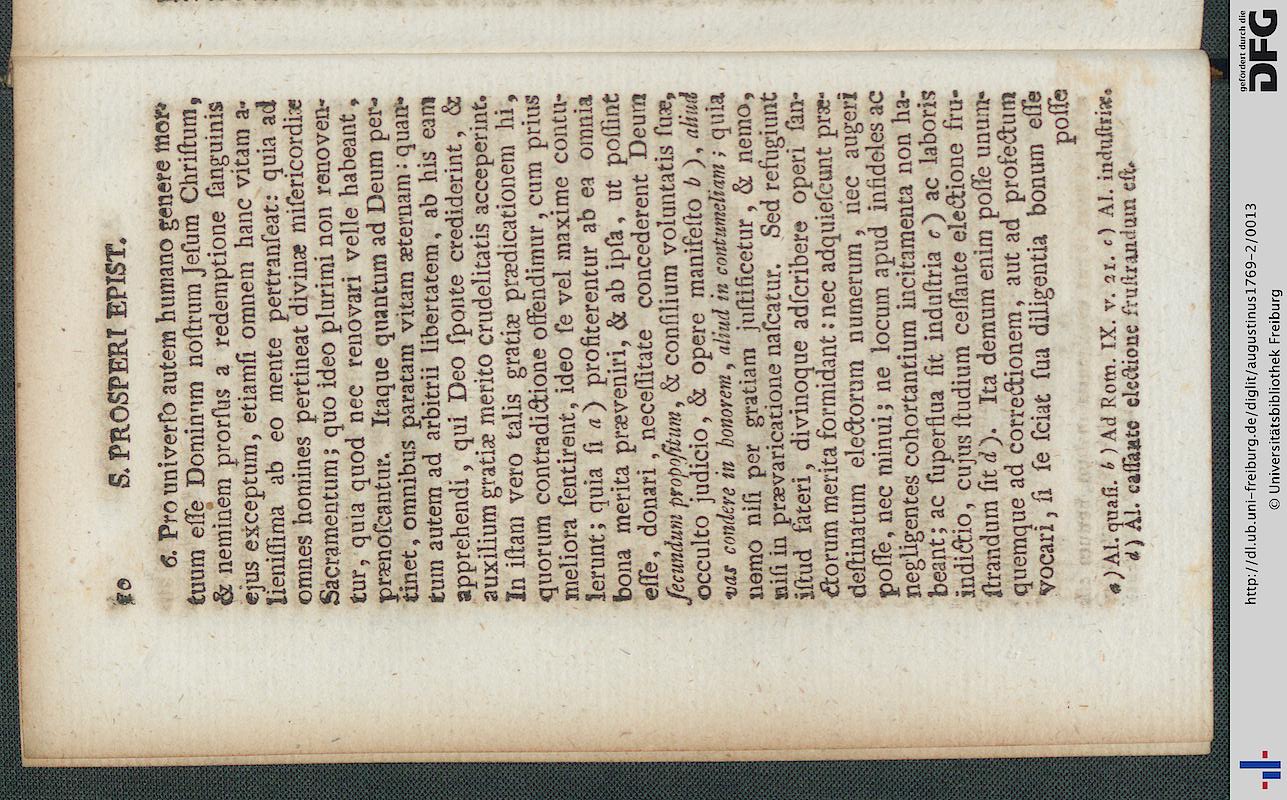 10 S. PROSPERI EPIST.
6. Pro univerſo autem humano genere mor-
tuum eſſe Dominum noſtrum Jeſum Chriſtum,
& neminem prorſus a redemptione ſanguinis
ejus exceptum, etiamſi omnem hanc vitam a-
lieniſſima ab eo mente pertranſeat: quia ad
omnes homines pertineat divinæ miſericordiæ
Sacramentum; quo ideo plurimi non renoven-
tur, quia quod nec renovari velle habeant,
prænoſcantur. Itaque quantum ad Deum per-
tinet, omnibus paratam vitam æternam: quan-
tum autem ad arbitrii libertatem, ab his eam
apprehendi, qui Deo ſponte crediderint, &
auxilium gratiæ merito crudelitatis acceperint.
In iſtam vero talis gratiæ prædicationem hi,
quorum contradictione offendimur, cum prius
meliora ſentirent, ideo ſe vel maxime contu-
lerunt; quia ſi a) profiterentur ab ea omnia
bona merita præveniri, & ab ipſa, ut poſſint
eſſe, donari, neceſſitate concederent Deum
ſecundum propoſitum, & conſilium voluntatis ſuæ,
occulto judicio, & opere manifeſto b), aliud
vas condere in honorem, aliud in contumeliam; quia
nemo niſi per gratiam juſtificetur, & nemo,
niſi in prævaricatione naſcatur. Sed refugiunt
iſtud fateri, divinoque adſcribere operi ſan-
ctorum merita formidant: nec adquieſcunt præ-
deſtinatum electorum numerum, nec augeri
poſſe, nec minui; ne locum apud infideles ac
negligentes cohortantium incitamenta non ha-
beant; ac ſuperflua ſit induſtria c) ac laboris
indictio, cujus ſtudium ceſſante electione fru-
ſtrandum ſit d). Ita demum enim poſſe unum-
quemque ad correctionem, aut ad profectum
vocari, ſi ſe ſciat ſua diligentia bonum eſſe
poſſe
a) Al. quaſi. b) Ad Rom. IX. v. 21. c) Al. induſtriæ.
d) Al. caſſato electione fruſtrandum eſt.
gefördert durch die
DFG
http://dl.ub.uni-freiburg.de/diglit/augustinus1769-2/0013
© Universitätsbibliothek Freiburg